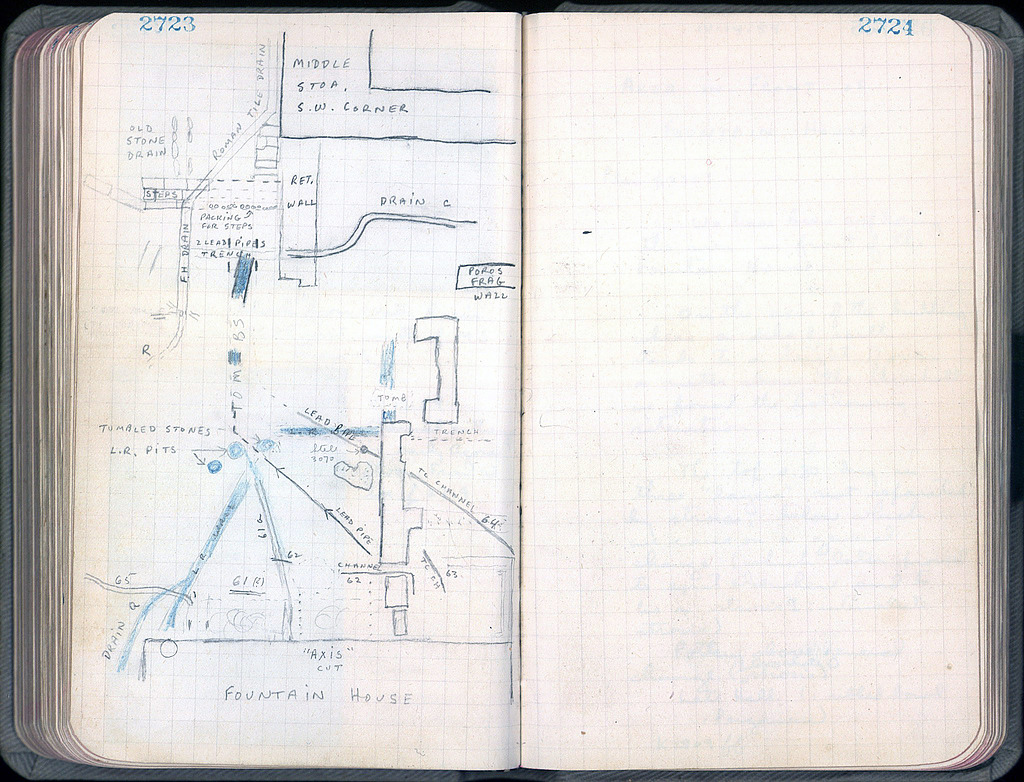 2723
2724
MIDDLE
STOA,
S.W. CORNER
ROMAN TILE DRAIN
OLD
STONE
DRAIN
STEPS
RET.
WALL
PACKING
FOR STEPS
DRAIN C
2 LEAD PIPES
TRENCH
F.H DRAIN
POROS
FRAG
WALL
R
TOMBS
TOMB
LEAD
TUMBLED STONES
TRENCH
L.R. PITS
3070
TC CHANNEL
64
LEAD PIPE
61
62
L.R.
CHANNEL
62
TC CH
63
65
61
DRAIN R
"AXIS"
CUT
FOUNTAIN HOUSE